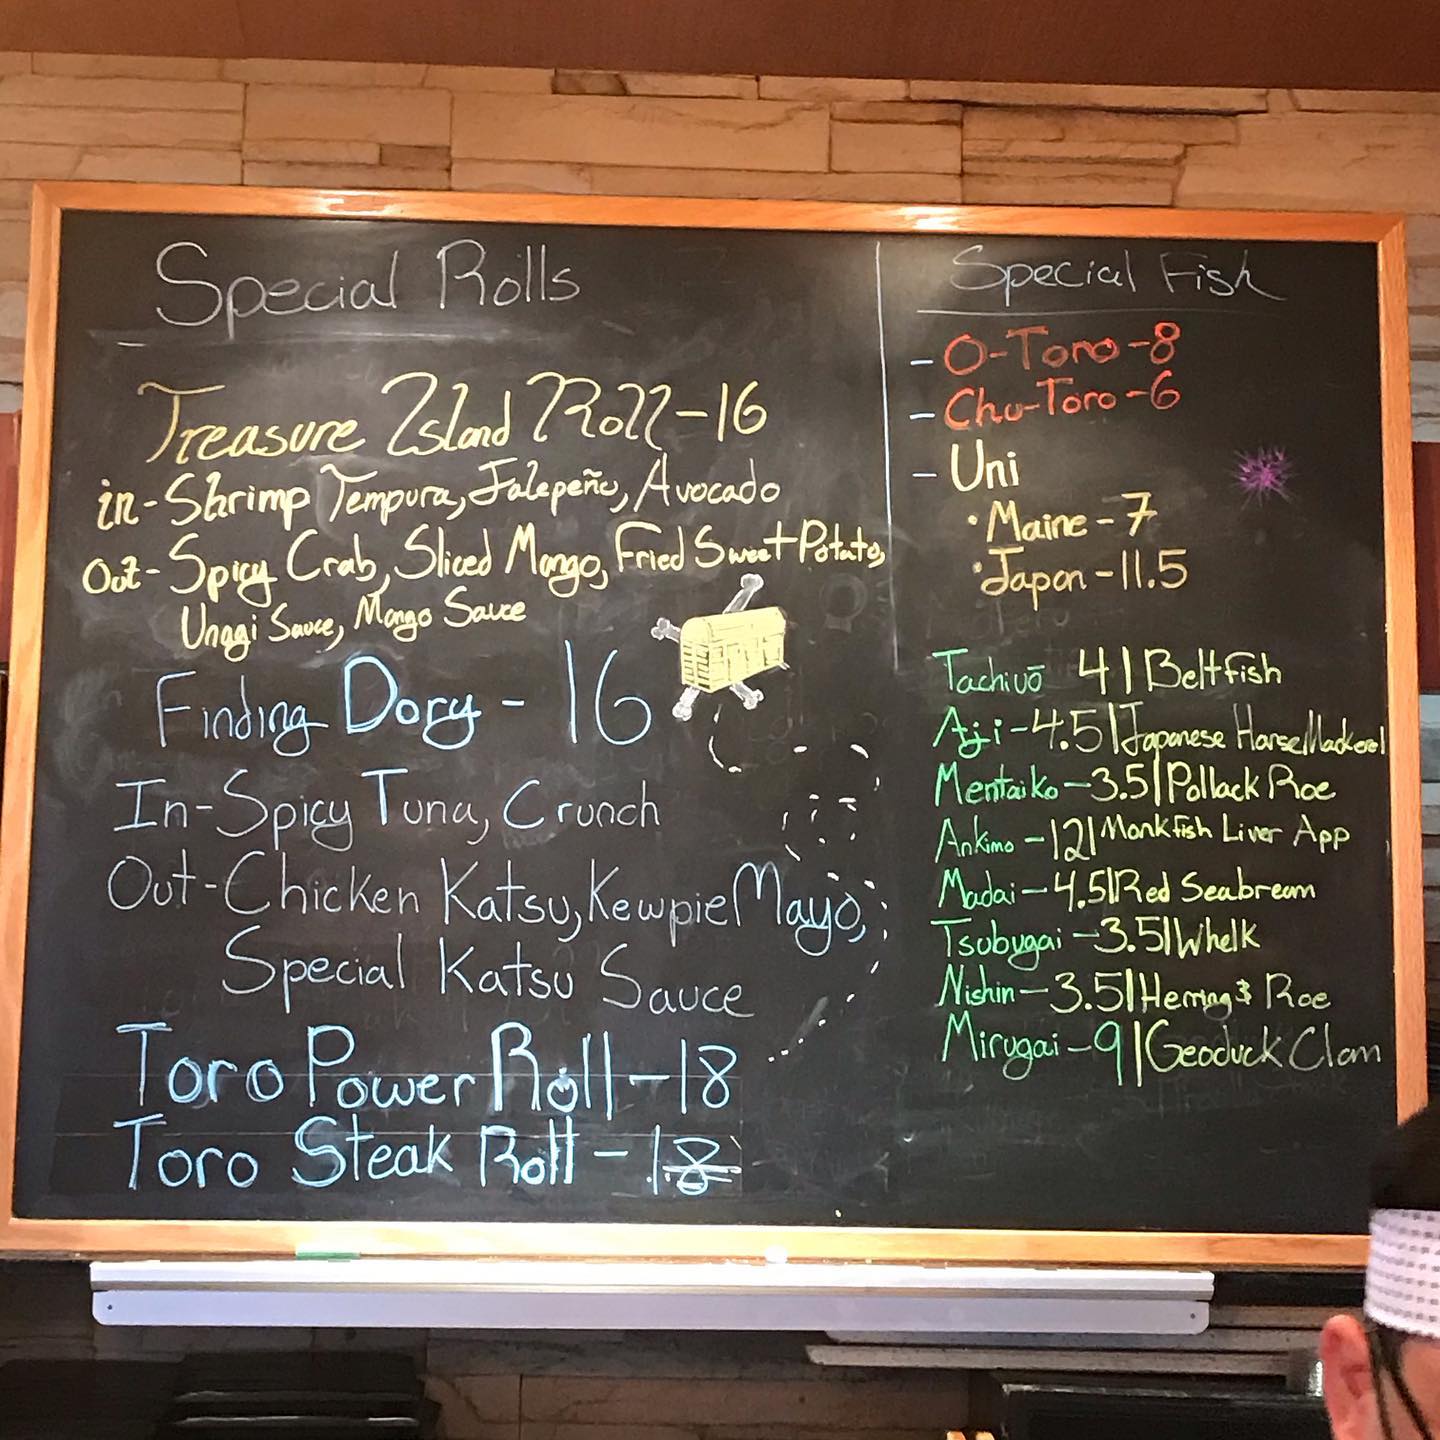 Special Rolls
Treasure Island Roll-16
in-Shrimp Tempura, Jalepeño, Avocado
Out-Spicy Crab, Sliced Mango, Fried Sweet Potato,
Unagi Sauce, Mango Sauce
Finding Dory - 16
In-Spicy Tuna, Crunch
Out-Chicken Katsu, Kewpie Mayo,
Special Katsu Sauce
Toro Power Roll-18
Toro Steak Roll-18
Special Fish
- O-Toro-8
- Chu-Toro-6
- Uni
• Maine-7
• Japan-11.5
Tachiuō 4|Beltfish
Aji-4.5|Japanese Horse Mackerel
Mentaiko-3.5|Pollack Roe
Ankimo-12|Monkfish Liver App
Madai-4.5|Red Seabream
Tsubugai-3.5|Whelk
Nishin-3.5|Herring & Roe
Mirugai-9|Geoduck Clam